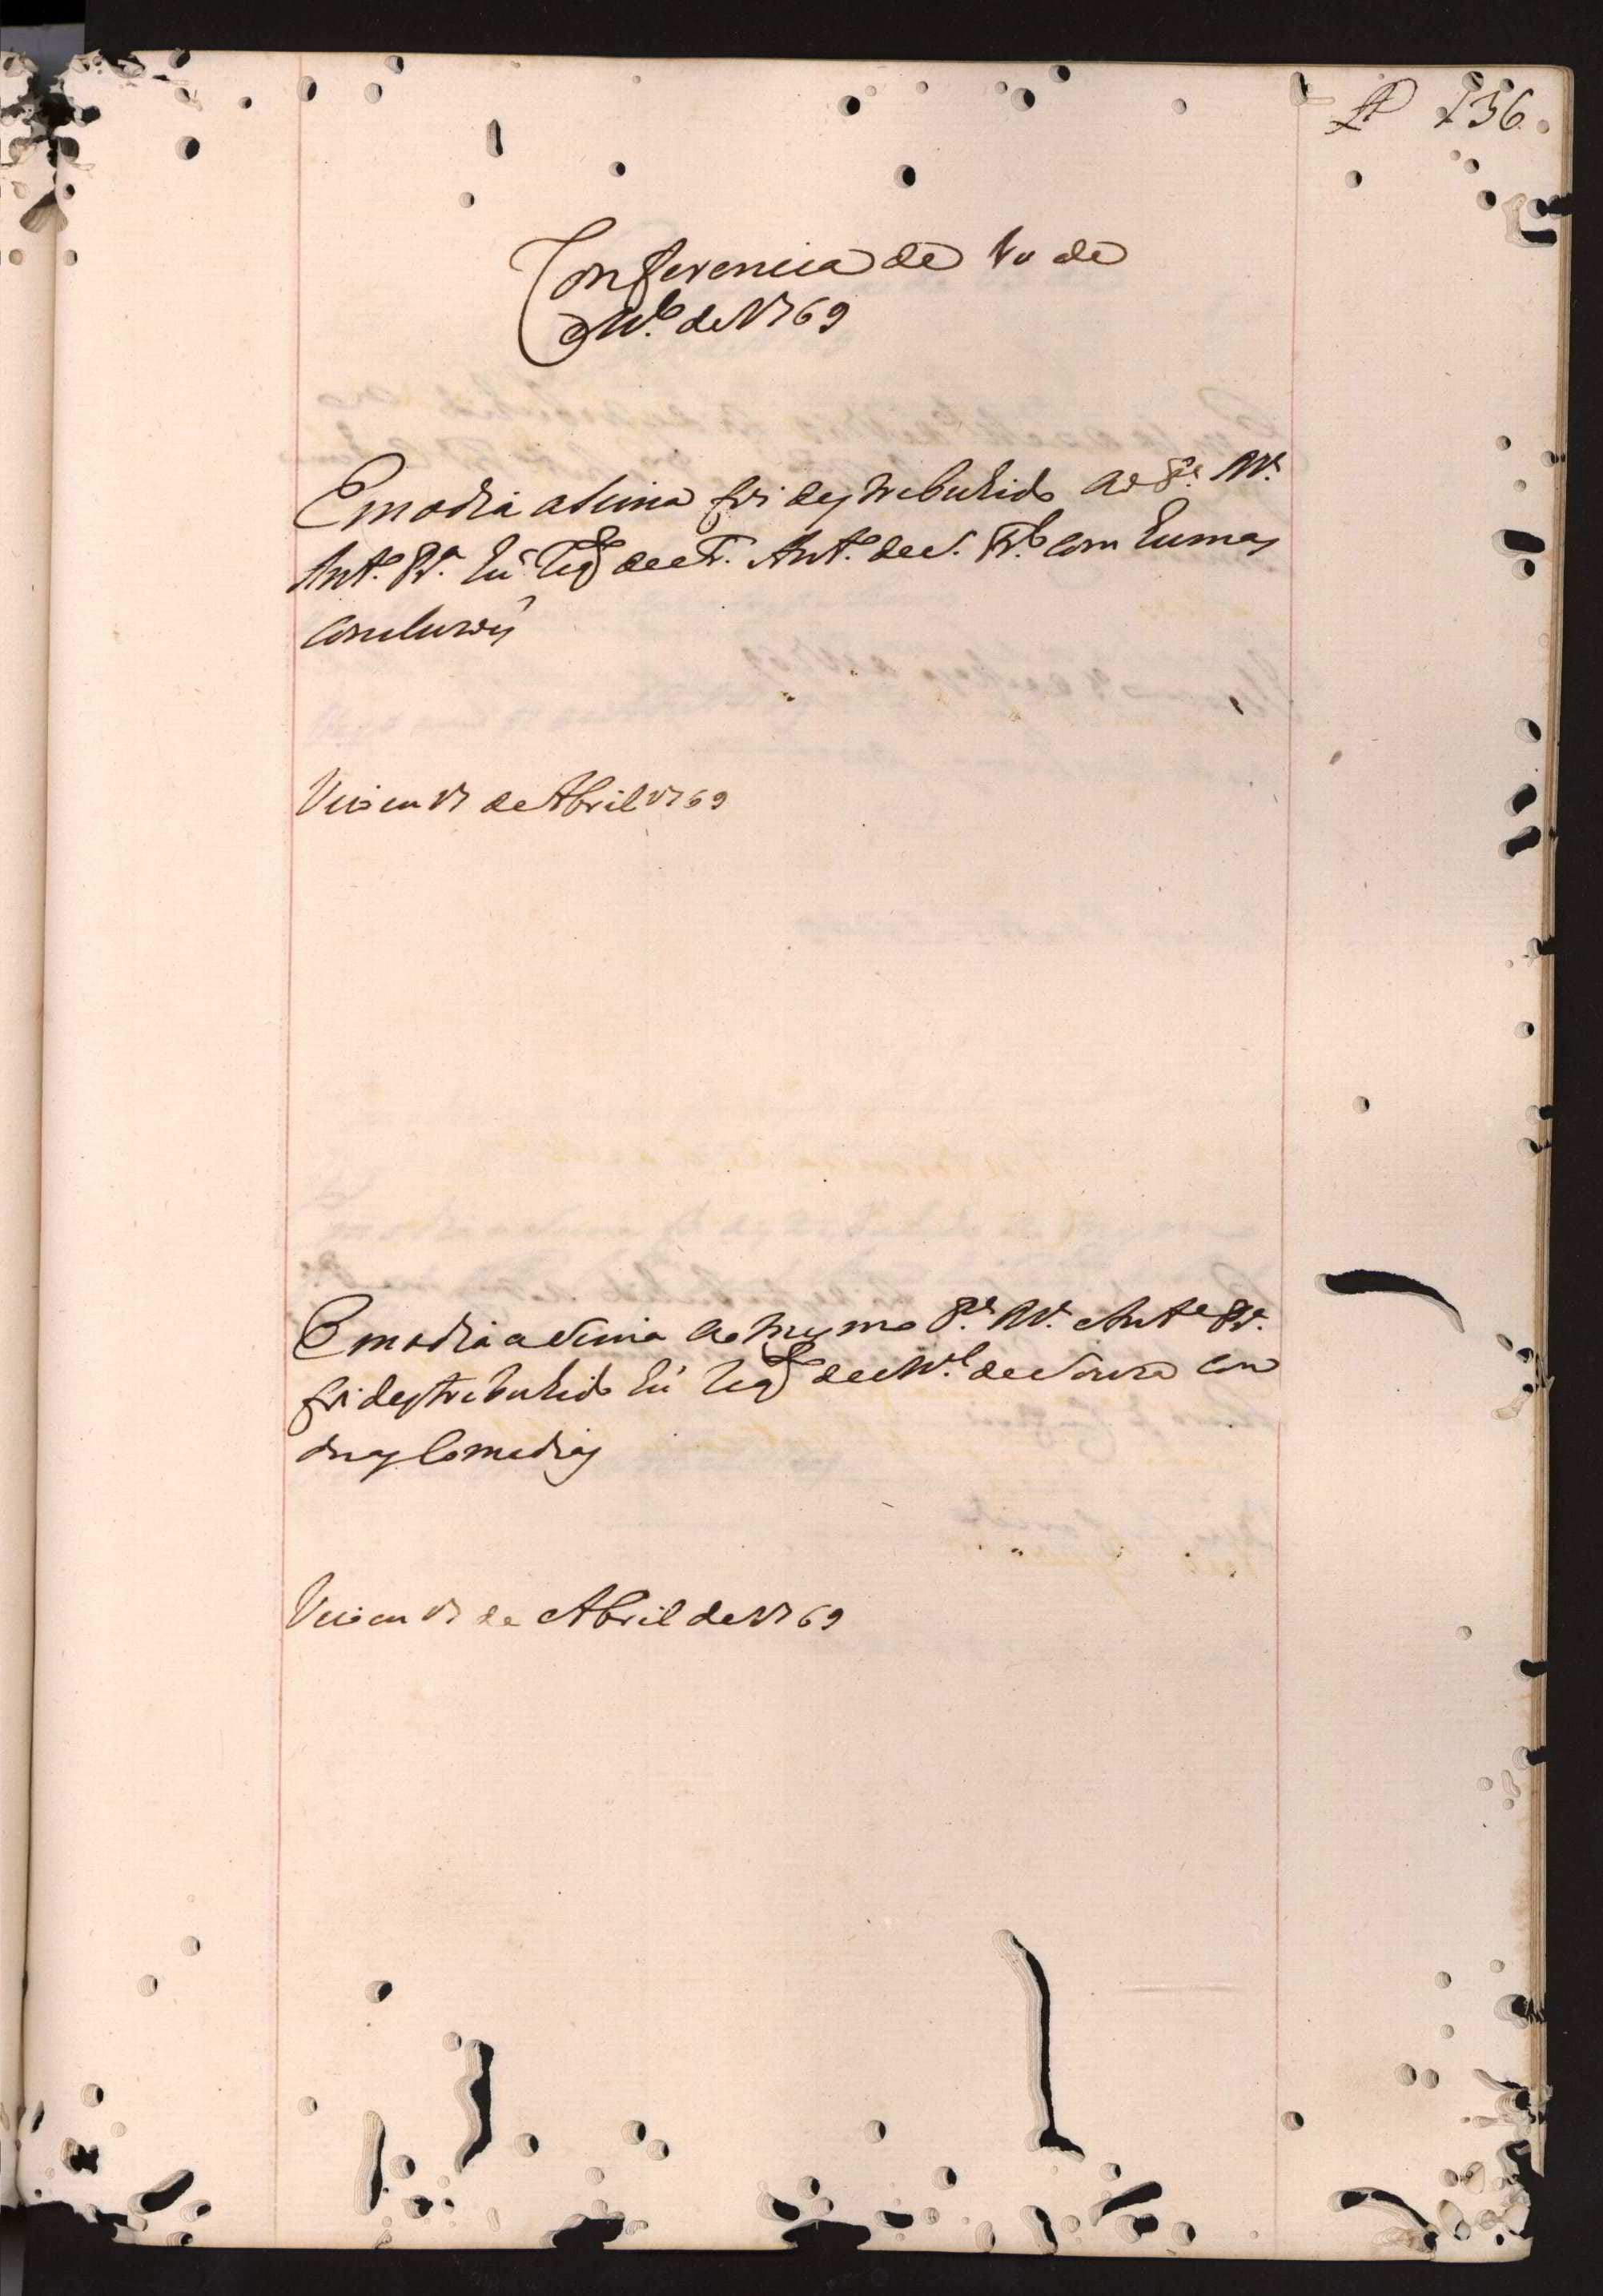 136
Conferencia de 10 de
Abr.º de 1769
Em o dia asima foi destribuhido ao P.e M.e
Ant.º Pr.ª hũ req.to de F. Ant.º de S. com humas
concluzõis
Veio em 17 de Abril 1769
Em o dia asima ao mesmo P.e M.e Ant.º Pr.ª
foi destribuhido hũ req.to de M.el de Souza com
duas Comedias
Veio em 17 de Abril de 1769